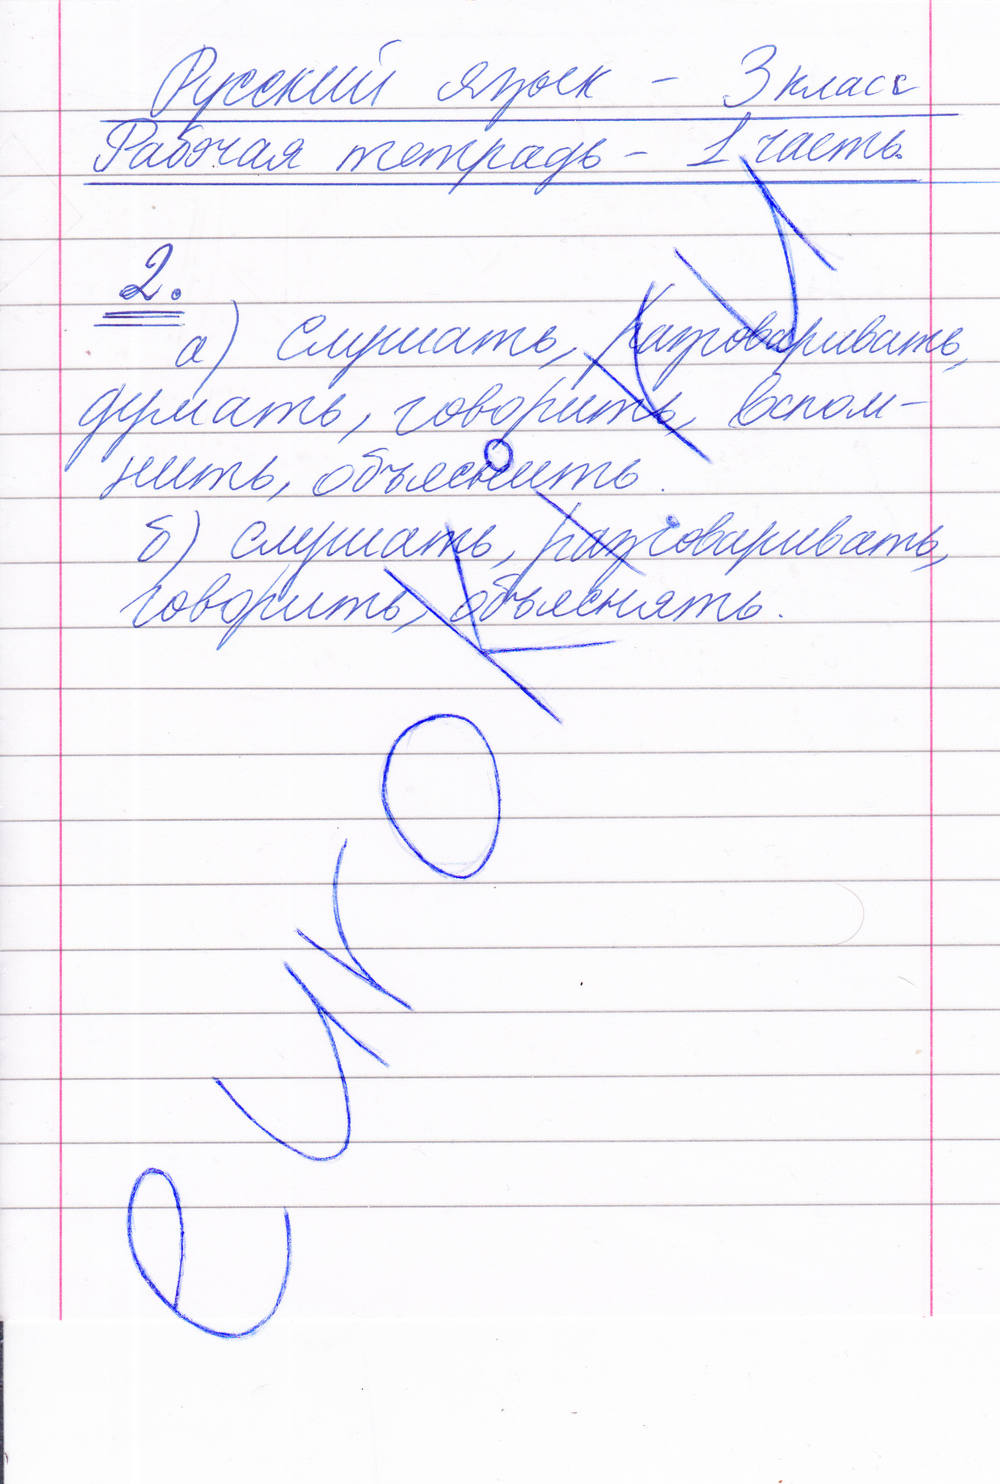 Русский язык - 3 класс
Рабочая тетрадь - 1 часть.
2.
а) слушать, разговаривать,
думать, говорить, вспом-
нить, объяснить.
б) слушать, разговаривать,
говорить, объяснять.
eurokI.KU